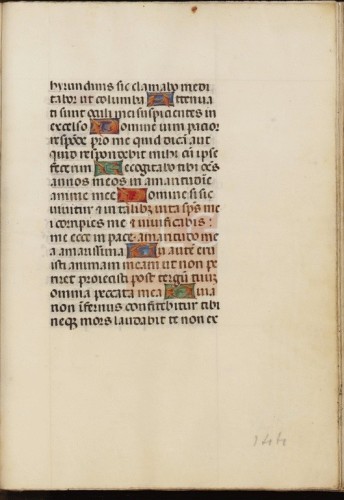 hyrundinis sic clamabo medi
tabor ut columba Attenua
ti sunt oculi mei suspicientes in
excelso Domine vim pacior
respōde pro me quid dicā aut
quid respondebit mihi cū ipse
fecerim Recogitabo tibi oēs
annos meos in amaritudīe
anime mee Domine si sic
vivitur et in talibz vita sps me
i corripies me et vivificabis:
me ecce in pace amaritudo me
a amarissima Tu autē eru
isti animam meam ut non pe
riret proiecisti post tergū tuū
omnia peccata mea Quia
non infernus confitebitur tibi
neqz mors laudabit te non ex
144